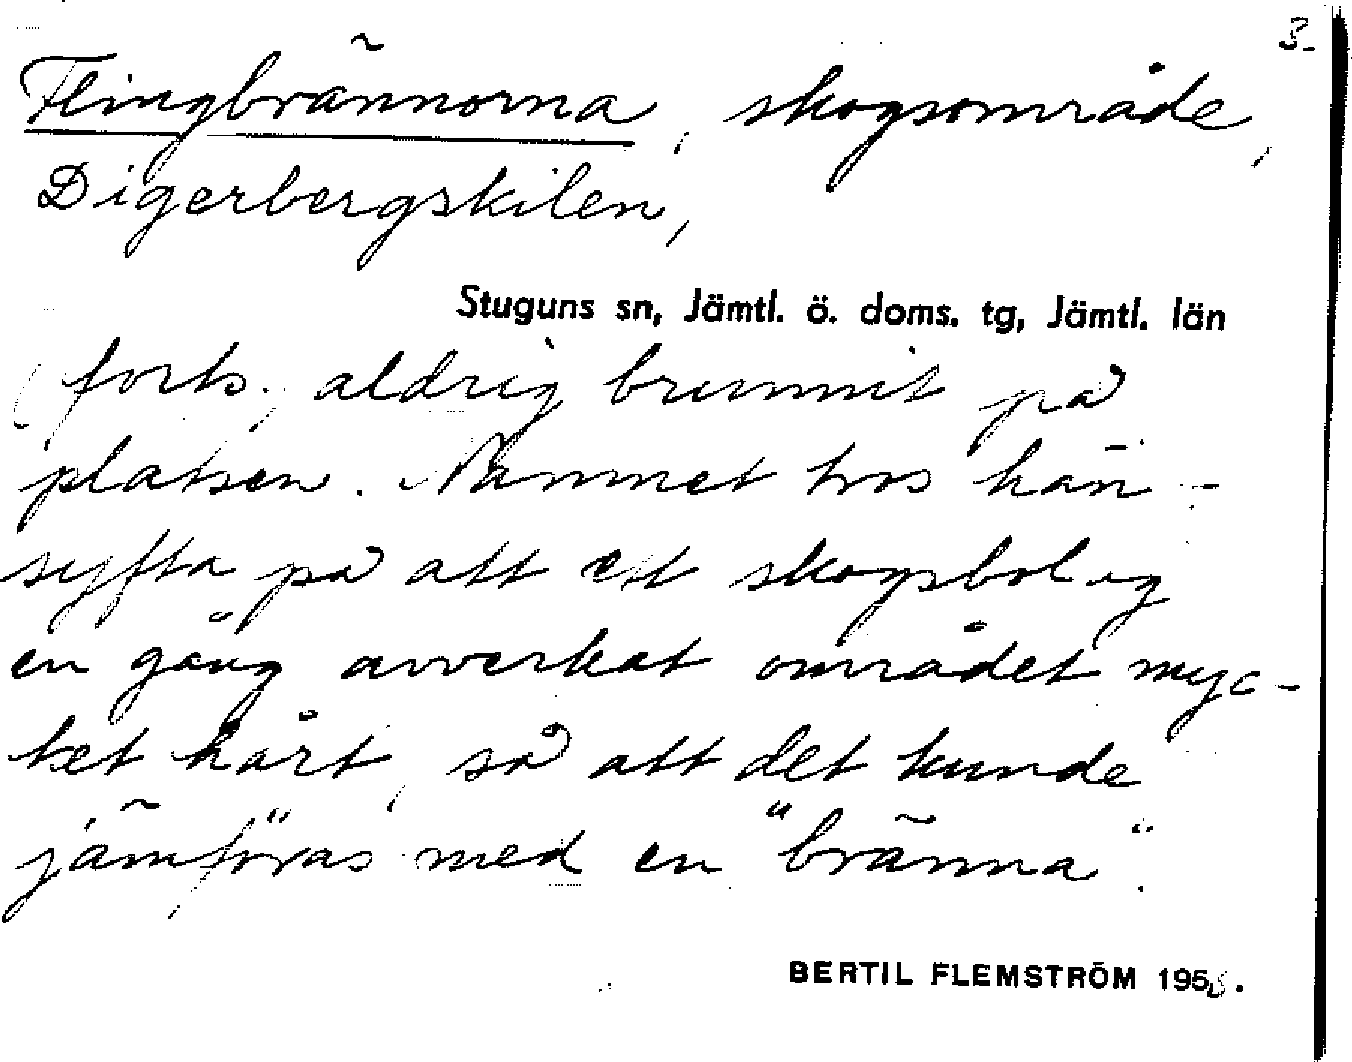 3.
Flingbrännorna, skogsområde,
Digerbergskilen,
Stuguns sn, Jämtl. ö. doms. tg, Jämtl. län
(forts. aldrig brunnit på
platsen. Namnet tros hän-
syfta på att ett skogsbolag
en gång avverkat området myc-
ket hårt, så att det kunde
jämföras med en "bränna".
BERTIL FLEMSTRÖM 195